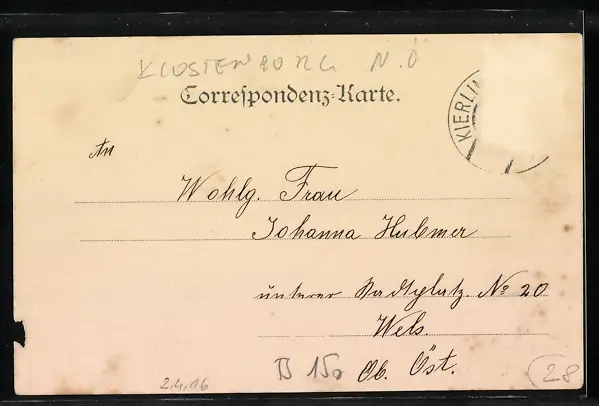 KLOSTENBURG N.Ö
Correspondenz-Karte.
KIERLIN
An
Wohlg. Frau
Johanna Hubmer
unterer Stadtplatz. No 20
Wels.
B 150
Ob. Öst.
2.4.16
28